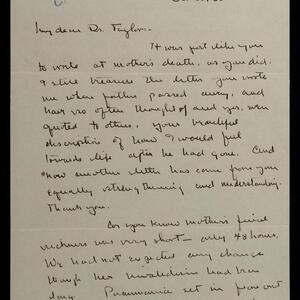 my dear Dr. Taylor:
It was just like you
to write at mother's death, as you did.
I still treasure the letter you wrote
me when father passed away, and
have so often thought of and yes, even
quoted to others, your beautiful
description of how I would feel
towards life after he had gone. And
now another letter has come from you
equally strengthening and understanding.
Thank you.
As you know mother's final
sickness was very short - only 48 hours.
We had not expected any change
though her invalidism had been
long. Pneumonia set in